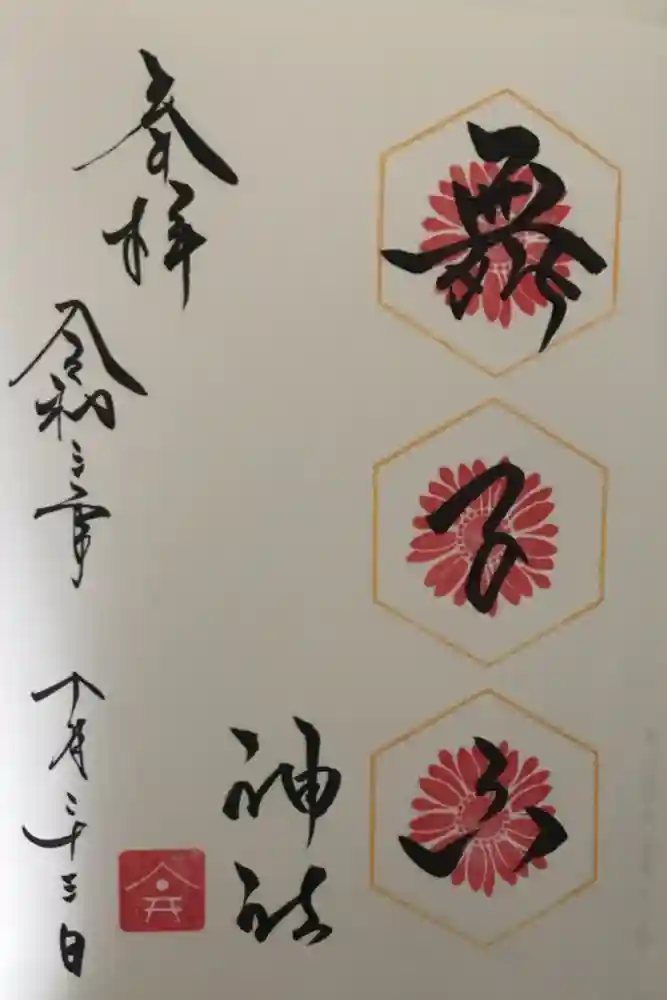 舞子六
神社
奉拝
令和三年
十月二十三日